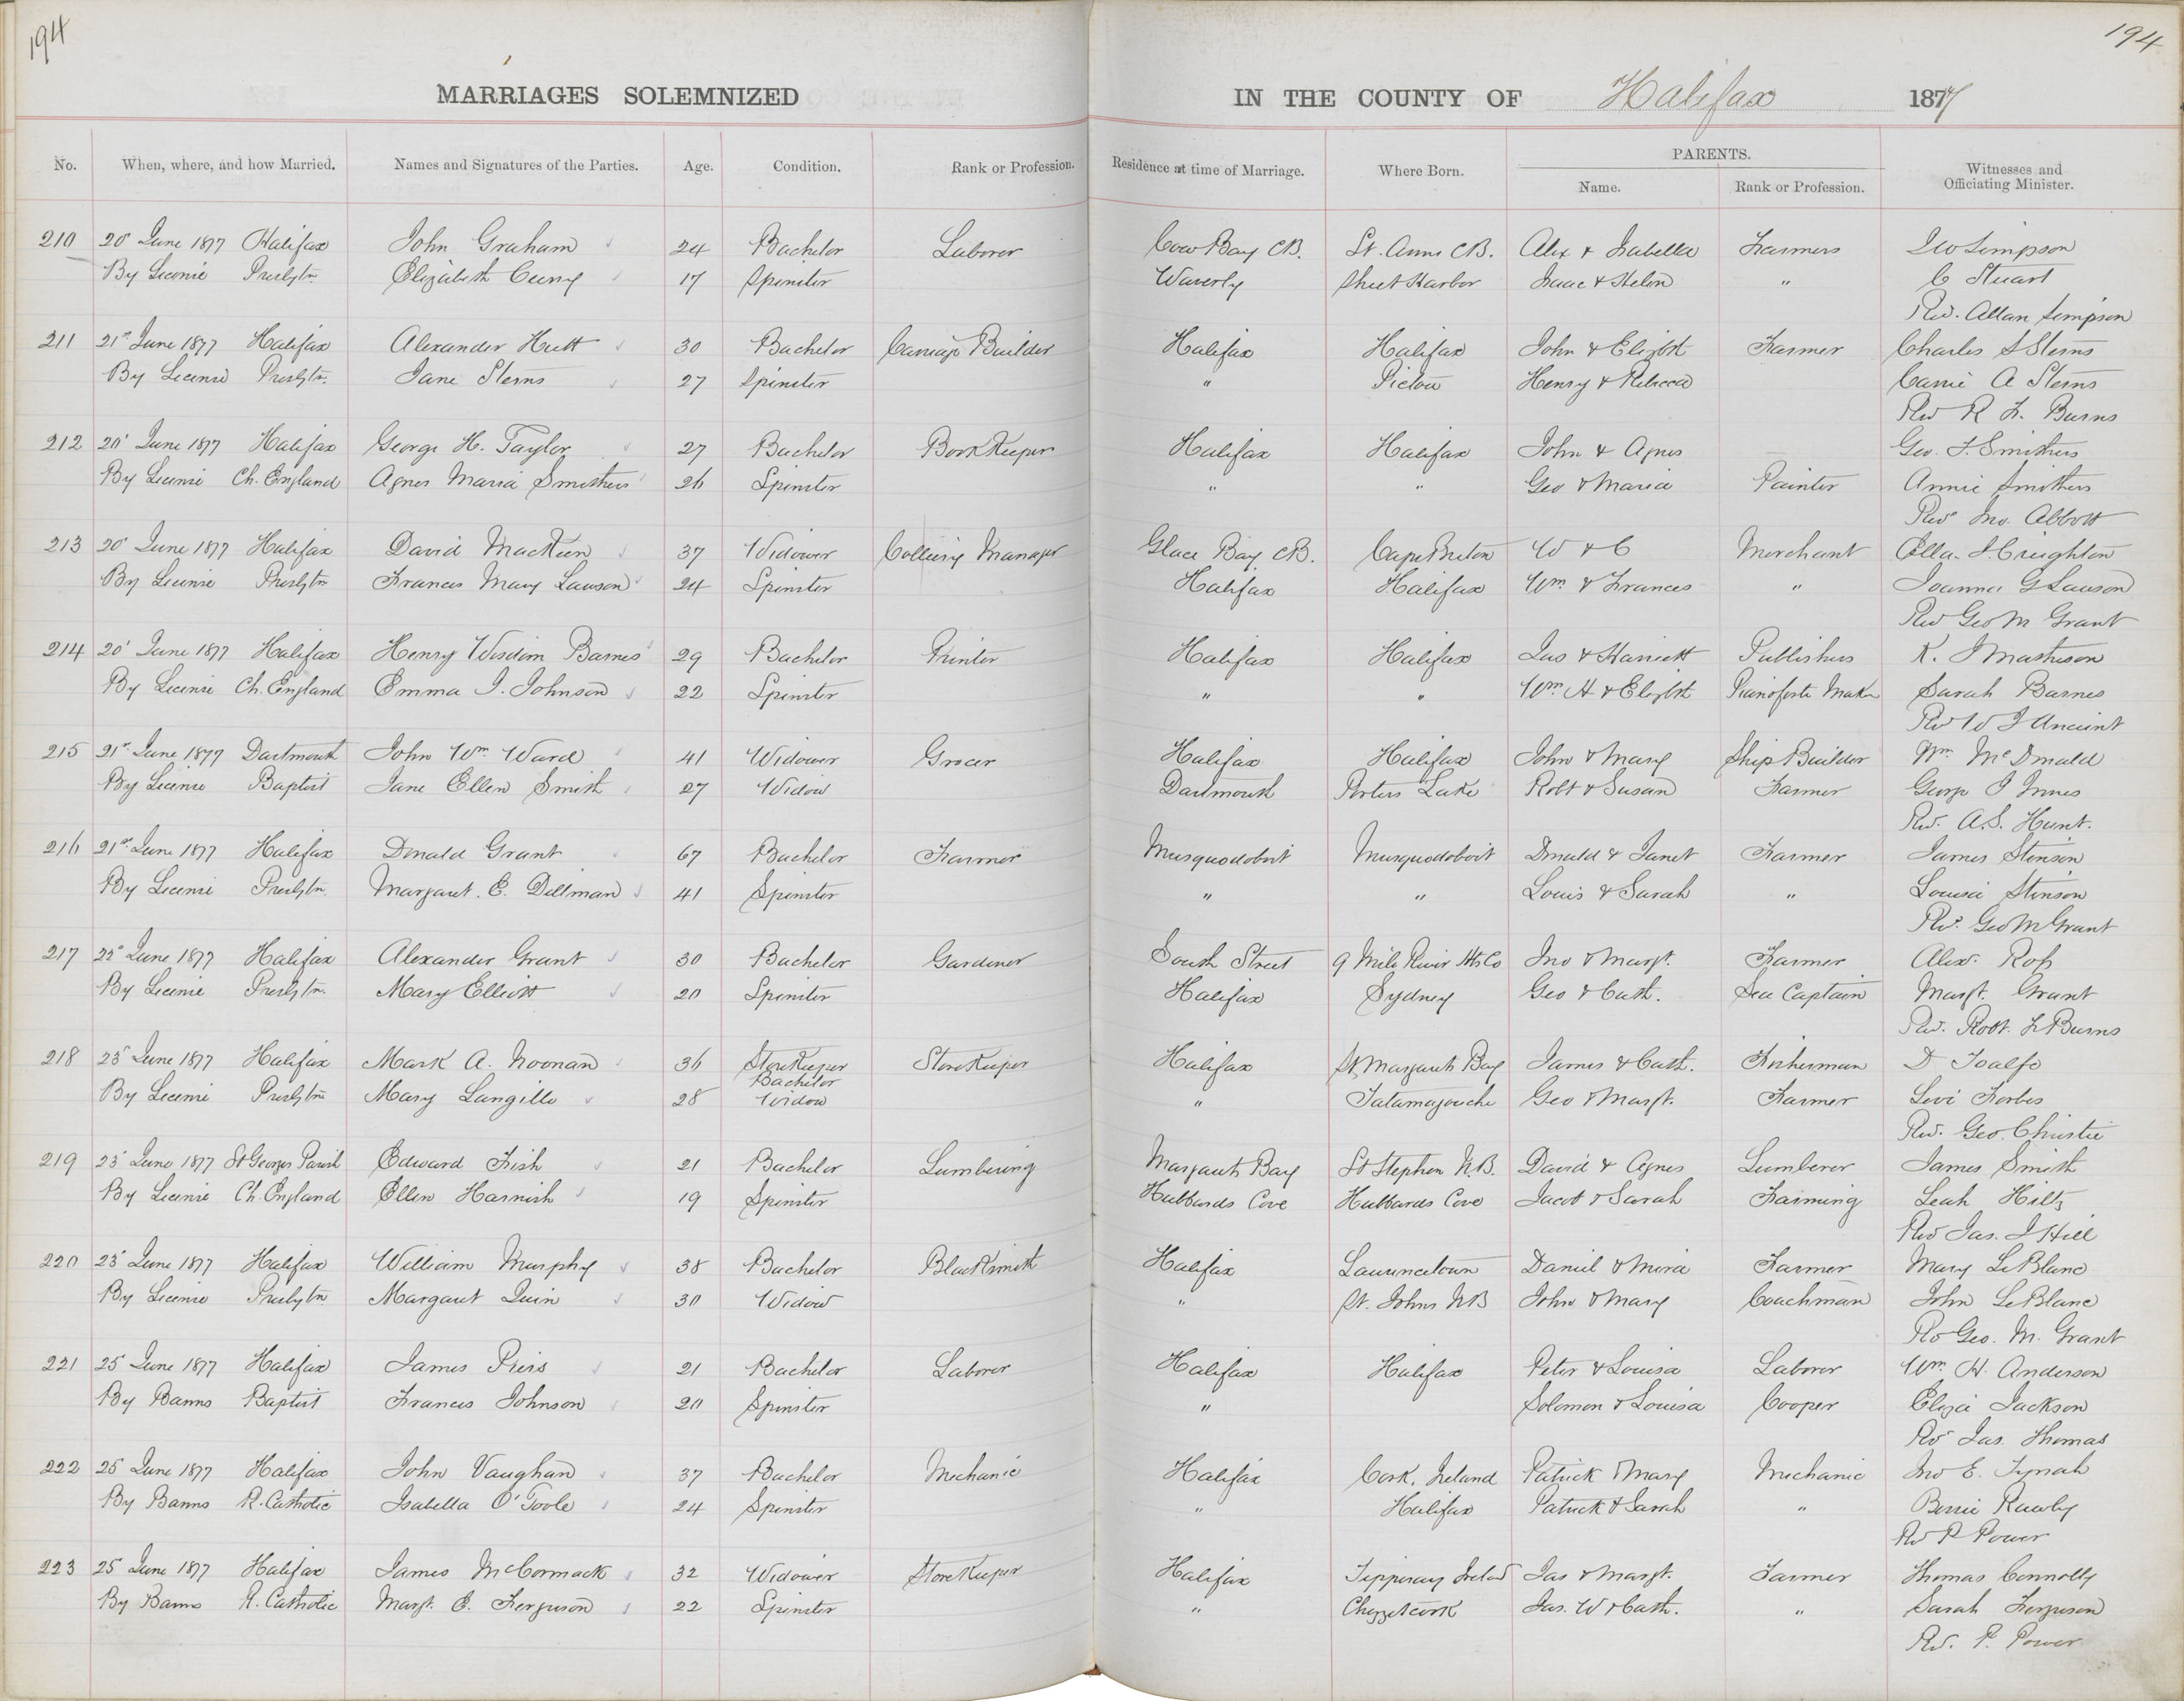 194
194
MARRIAGES SOLEMNIZED IN THE COUNTY OF Halifax 1877
No. When, where, and how Married. Names and Signatures of the Parties. Age. Condition. Rank or Profession. Residence at time of Marriage. Where Born. PARENTS. Name. Rank or Profession. Witnesses and Officiating Minister.
210 20 June 1877 Halifax John Graham 24 Bachelor Laborer Cow Bay CB. St. Anns CB. Alex & Isabella Farmers Simpson
By Licence Presbytn Elizabeth 17 Spinster Waverly Sheet Harbor Isaac & Helen " C Stuart
Rev. Allan Simpson
211 21st June 1877 Halifax Alexander Hutt 30 Bachelor Carriage Builder Halifax Halifax John & Elizbt Farmer Charles S Sterns
By License Presbytn. Jane Sterns 27 Spinster " Pictou Henry & Rebecca Carrie A Sterns
Rev R F. Burns
212 20' June 1877 Halifax George H. Taylor 27 Bachelor BookKeeper Halifax Halifax John & Agnes Geo. F. Smithers
By Licence Ch. England Agnes Maria Smithers 26 Spinster " " Geo & Maria Painter Annie Smithers
Revd Jno. Abbott
213 20' June 1877 Halifax David MacKeen 37 Widower Colliery Manager Glace Bay, CB. Cape Breton W & C Merchant Ella. Creighton
By Licence Presbytn Frances Mary Lawson 24 Spinster Halifax Halifax Wm & Frances " Joanna G Lawson
Rev Geo M Grant
214 20' June 1877 Halifax Henry Wisdom Barnes 29 Bachelor Printer Halifax Halifax Jas & Harriett Publishers K. Mathison
By Licence Ch. England Emma J. Johnson 22 Spinster " " Wm H & Elizbt Pianoforte Maker Sarah Barnes
Rev W J Ancient
215 21st June 1877 Dartmouth John Wm Ward 41 Widower Grocer Halifax Halifax John & Mary Ship Builder Wm McDonald
By Licence Baptist Jane Ellen Smith 27 Widow Dartmouth Porters Lake Robt & Susan Farmer George J Innes
Rev. A.S. Hunt.
216 21st June 1877 Halifax Donald Grant 67 Bachelor Farmer Musquodobit Musquodoboit Donald & Janet Farmer James Stinson
By License Presbytn. Margaret. E. Dillman 41 Spinster " " Louis & Sarah " Louisa Stinson
Rev. Geo M Grant
217 22d June 1877 Halifax Alexander Grant 30 Bachelor Gardiner South Street 9 Mile River Hts Co Jno & Margt. Farmer Alex. Ross
By Licence Presbytn. Mary Elliott 20 Spinster Halifax Sydney Geo & Cath. Sea Captain Margt. Grant
Rev. Robt. F Burns
218 23' June 1877 Halifax Mark A. Noonan 36 StoreKeeper Bachelor StoreKeeper Halifax St. Margarets Bay James & Cath. Fisherman D
By Licence Presbytn Mary Langille 28 Widow " Tatamagouche Geo & Margt. Farmer Levi Forbes
Rev. Geo. Christie
219 23' June 1877 St Georges Parish Edward Fish 21 Bachelor Lumbering Margarets Bay St Stephen N.B. David & Agnes Lumberer James Smith
By Licence Ch. England Ellen Harnish 19 Spinster Hubbards Cove Hubbards Cove Jacob & Sarah Farming Leah Hilts
Rev Jas. J Hill
220 23' June 1877 Halifax William Murphy 38 Bachelor BlackSmith Halifax Lawrencetown Daniel & Mira Farmer Mary LeBlanc
By Licence Presbytn Margaret Quin 30 Widow " St. Johns NB John & Mary Coachman John LeBlanc
Rev Geo. M. Grant
221 25 June 1877 Halifax James Piers 21 Bachelor Laborer Halifax Halifax Peter & Louisa Laborer Wm. H. Anderson
By Banns Baptist Frances Johnson 20 Spinster " Solomon & Louisa Cooper Eliza Jackson
Rev Jas. Thomas
222 25 June 1877 Halifax John Vaughan 37 Bachelor Mechanic Halifax Cork, Ireland Patrick & Mary Mechanic Jno E.
By Banns R. Catholic Isabella O'Toole 24 Spinster " Halifax Patrick & Sarah "
Rev P Power
223 25 June 1877 Halifax James McCormack 32 Widower StoreKeeper Halifax Tipperary Jas & Margt. Farmer Thomas Connolly
By Banns R. Catholic Margt. E. Ferguson 22 Spinster " Chezzetcook Jas. W & Cath. " Sarah Ferguson
Rev. P. Power